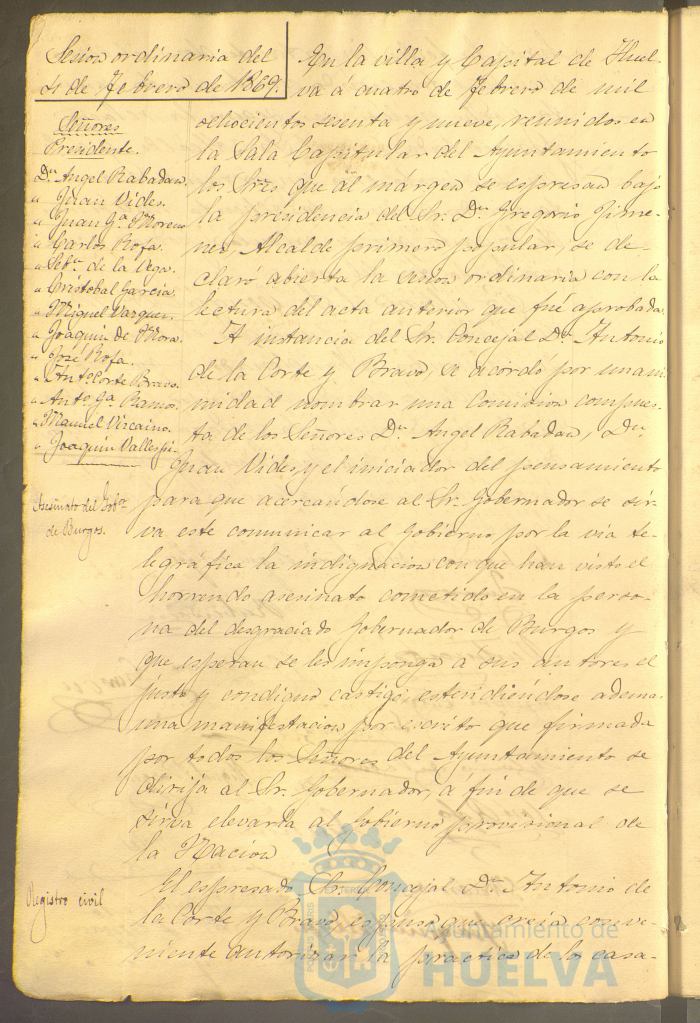 Sesion ordinaria del
4 de Febrero de 1869.
Señores
Presidente.
Dn. Angel Rabadan.
" Juan Vides.
" Juan Ga. Moreno
" Carlos Rofa.
" Sebn. de la Vega.
" Cristobal Garcia.
" Miguel Vazquez.
" Joaquin de Mora.
" José Rofa.
" Anto. Corte Bravo.
" Anto. Ga. Ramos.
" Manuel Vizcaino.
" Joaquin Vallespin.
En la villa y Capital de Huel-
va á cuatro de Febrero de mil
ochocientos sesenta y nueve, reunidos en
la Sala Capitular del Ayuntamiento
los Sres. que al márgen se espresan bajo
la presidencia del Sr. Dn. Gregorio Jime-
nez, Alcalde primero popular, se de-
claró abierta la sesion ordinaria con la
lectura del acta anterior que fué aprobada.
A instancia del Sr. Concejal Dn. Antonio
de la Corte y Bravo, se acordó por unani-
midad nombrar una Comision compues-
ta de los Señores Dn. Angel Rabadan, Dn.
Juan Vides, y el iniciador del pensamiento
Asesinato del Gobor.
de Burgos.
para que acercandose al Sr. Gobernador se sir-
va este comunicar al Gobierno por la via te-
legráfica la indignacion con que han visto el
horrendo asesinato cometido en la perso-
na del desgraciado Gobernador de Burgos y
que esperan se les imponga a sus autores el
justo y condigno castigo, estendiendose ademas
una manifestacion por escrito que firmada
por todos los Señores del Ayuntamiento se
dirija al Sr. Gobernador, á fin de que se
sirva elevarla al Gobierno provisional de
la Nacion
Registro civil
El espresado Sr. Concejal Dn. Antonio de
la Corte y Bravo espuso que creia conve-
niente autorizar la practica de los casa-
Ayuntamiento de
HUELVA